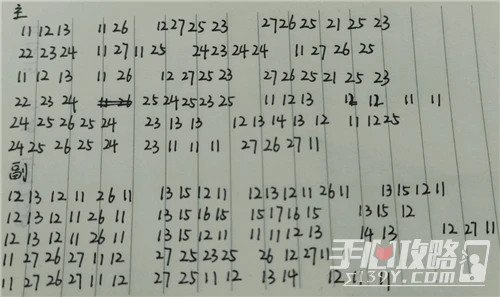 主
11 12 13 11 26 12 27 25 23 27 26 25 21 25 23
22 23 24 11 27 11 25 24 23 24 24 11 27 26 25
11 12 13 11 26 12 27 25 23 27 26 25 21 25 23
22 23 24 25 24 25 23 25 11 12 13 12 12 11 11
24 25 26 25 24 23 13 13 12 13 14 13 12 11 12 25
24 25 26 25 24 23 11 11 11 27 26 27 11
副
12 13 12 11 26 11 13 15 12 11 12 13 12 11 26 11 13 15 12 11
12 13 12 11 26 11 13 15 16 15 15 17 16 15 13 15 12
12 13 12 11 26 11 13 15 12 11 11 11 12 13 14 13 12 27 11
11 27 26 27 11 12 27 25 23 25 26 12 27 11
11 27 26 27 11 12 27 25 11 12 13 14 12 11
手心攻略